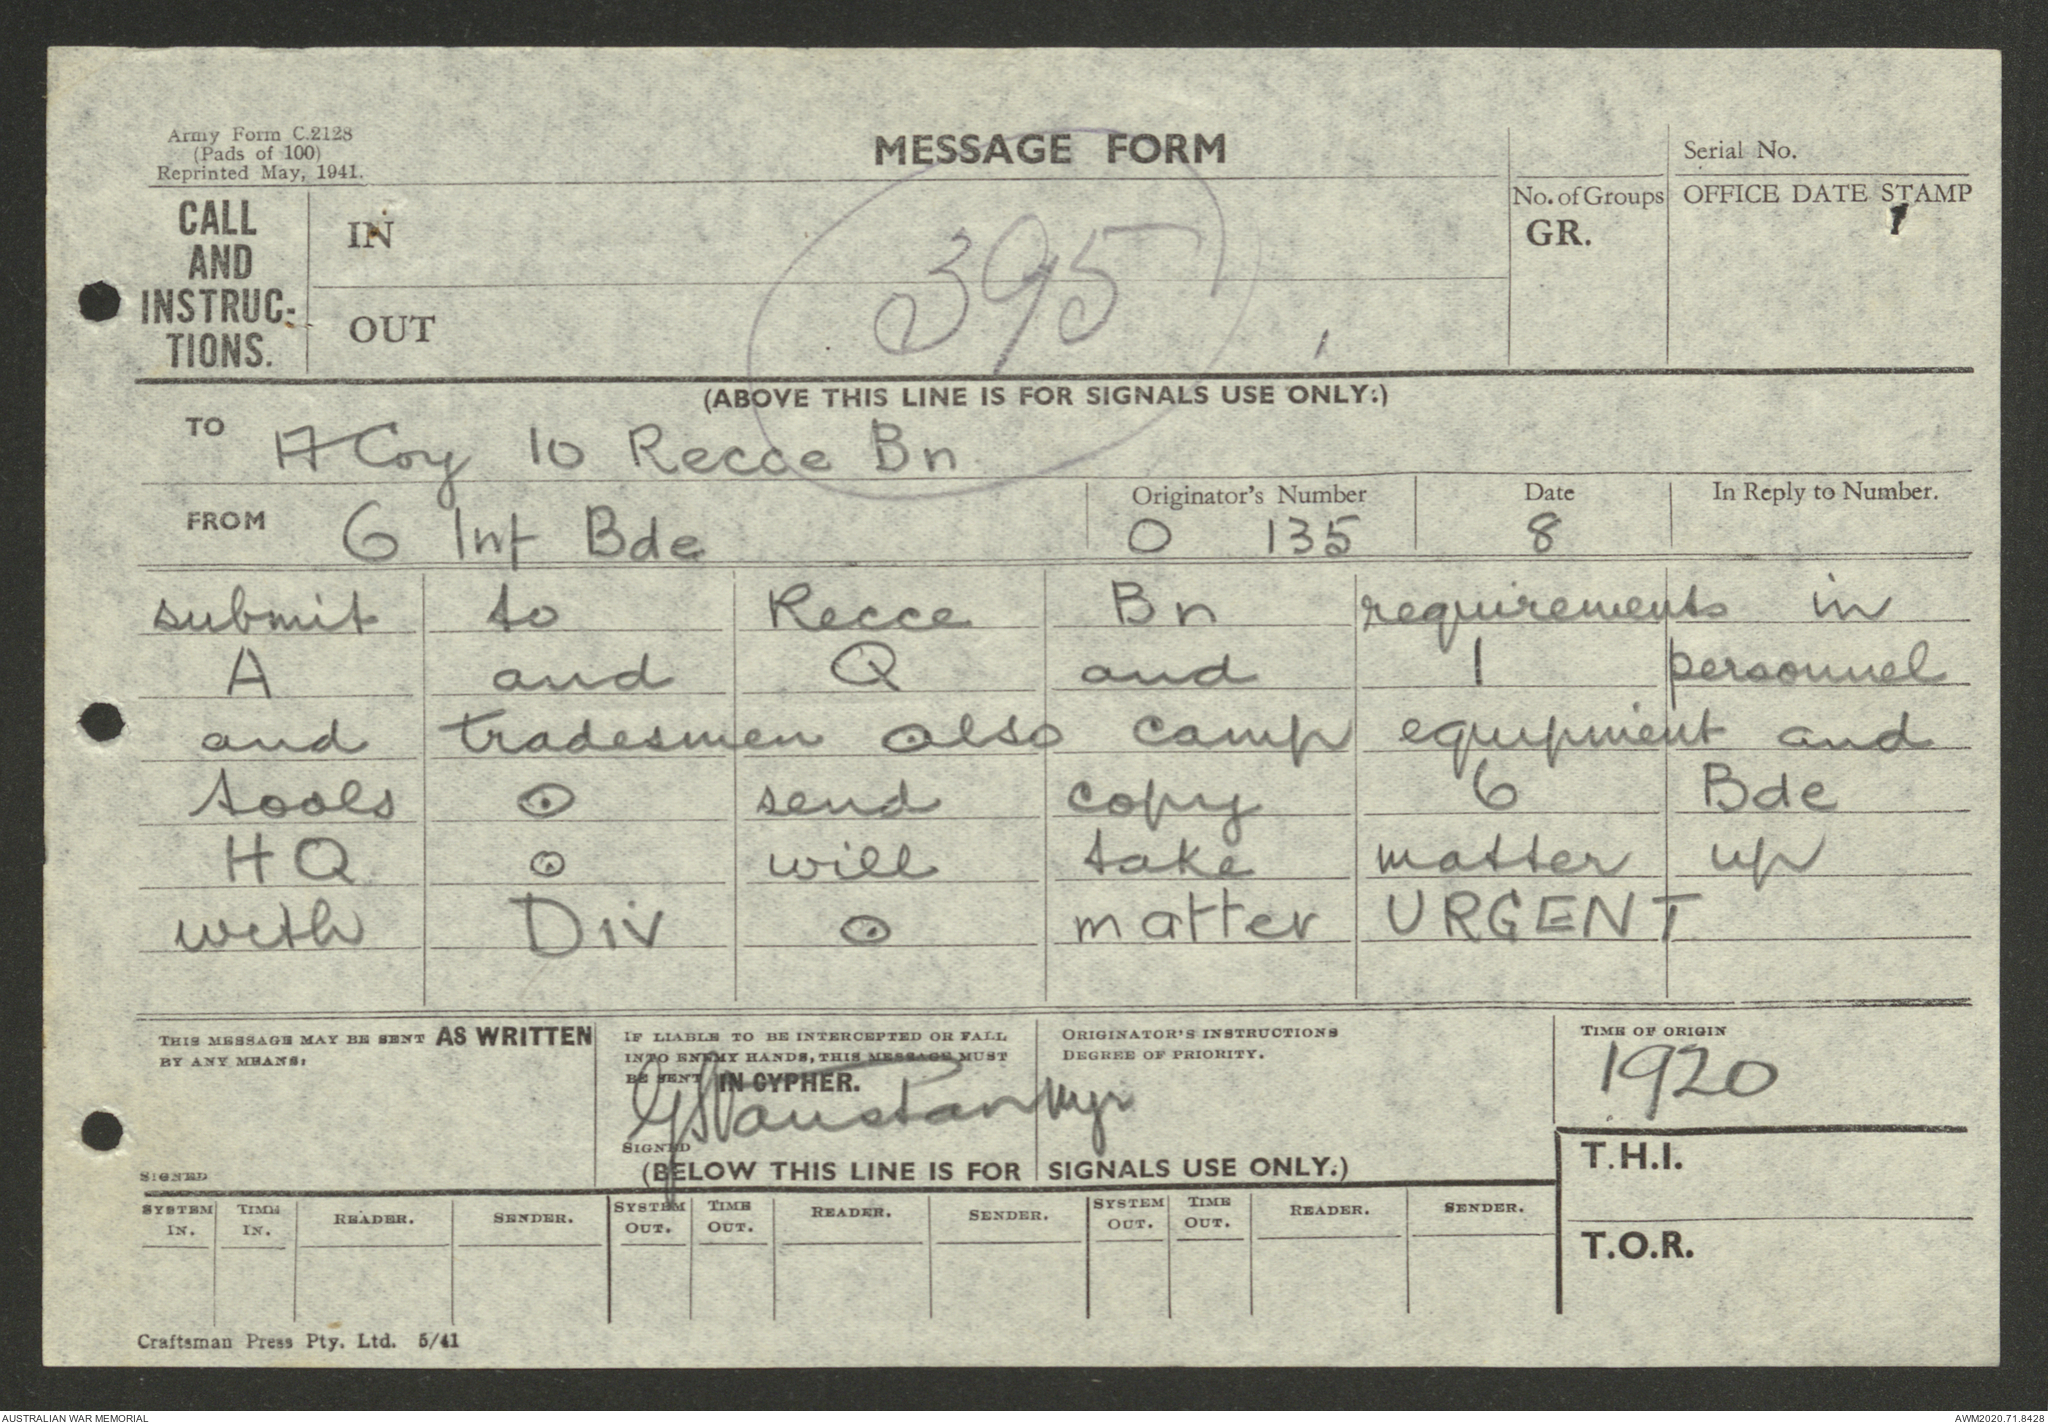 Army Form C.2128
(Pads of 100)
Reprinted May, 1941.
MESSAGE FORM
Serial No.
CALL
AND
INSTRUC-
TIONS.
IN
OUT
395
No. of Groups
GR.
OFFICE DATE STAMP
(ABOVE THIS LINE IS FOR SIGNALS USE ONLY.)
TO A Coy 10 Recce Bn
FROM 6 Inf Bde
Originator's Number
O 135
Date
8
In Reply to Number.
submit to Recce Bn requirements in
A and Q and I personnel
and tradesmen also camp equipment and
tools ⊙ send copy 6 Bde
HQ ⊙ will take matter up
with Div ⊙ matter URGENT
THIS MESSAGE MAY BE SENT AS WRITTEN
BY ANY MEANS:
SIGNED
IF LIABLE TO BE INTERCEPTED OR FALL
INTO ENEMY HANDS, THIS MESSAGE MUST
BE SENT IN CYPHER.
SIGNED
ORIGINATOR'S INSTRUCTIONS
DEGREE OF PRIORITY.
TIME OF ORIGIN
1920
(BELOW THIS LINE IS FOR SIGNALS USE ONLY.)
T.H.I.
T.O.R.
SYSTEM IN. TIME IN. READER. SENDER. SYSTEM OUT. TIME OUT. READER. SENDER. SYSTEM OUT. TIME OUT. READER. SENDER.
Craftsman Press Pty. Ltd. 5/41
AUSTRALIAN WAR MEMORIAL
AWM2020.71.8428